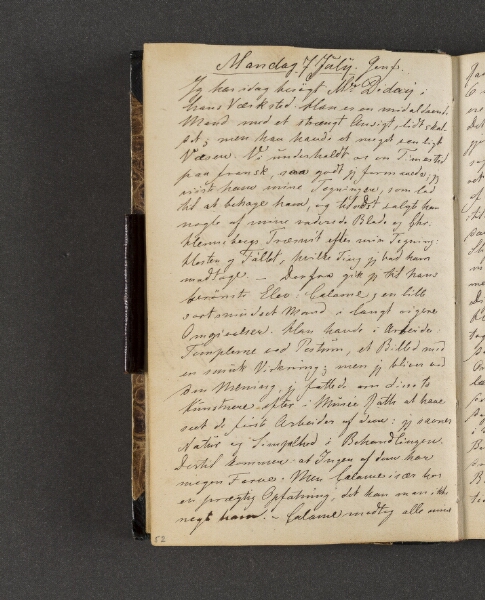 Mandag 7 July. Genf.
Jeg har idag besögt Mr Diday i
hans Værksted. Han er en midaldrende
Mand med et strængt Ansigt, lidt skal-
det; men han havde et meget venligt
Væsen. Vi underholdt os en Timestid
paa fransk, saa godt jeg formaaede; jeg
viiste ham mine Tegninger, som lod
til at behage ham, og tilsidst valgte han
nogle af mine raderede Blade og
Træsnit efter min Tegning:
Hesten og Föllet, hvilke Ting jeg bad ham
modtage. – Derfra gik jeg til hans
berömte Elev: Calame; en lille
sort mindset Mand i langt rigere
Omgivelser. Han havde i Arbeide
Templerne ved Pestum, et Billed med
en smuk Virkning; men jeg bliver ved
den Mening, jeg fattede om disse to
Kunstnere efter i Musée Rath at have
seet de förste Arbeider af dem: jeg savner
Natur og Simpelhed i Behandlingen.
Dertil kommer at Ingen af dem har
megen Farve. Men Calame især har
en prægtig Opfatning; det kan man ikke
negte ham. – Calame modtog alle mine
52